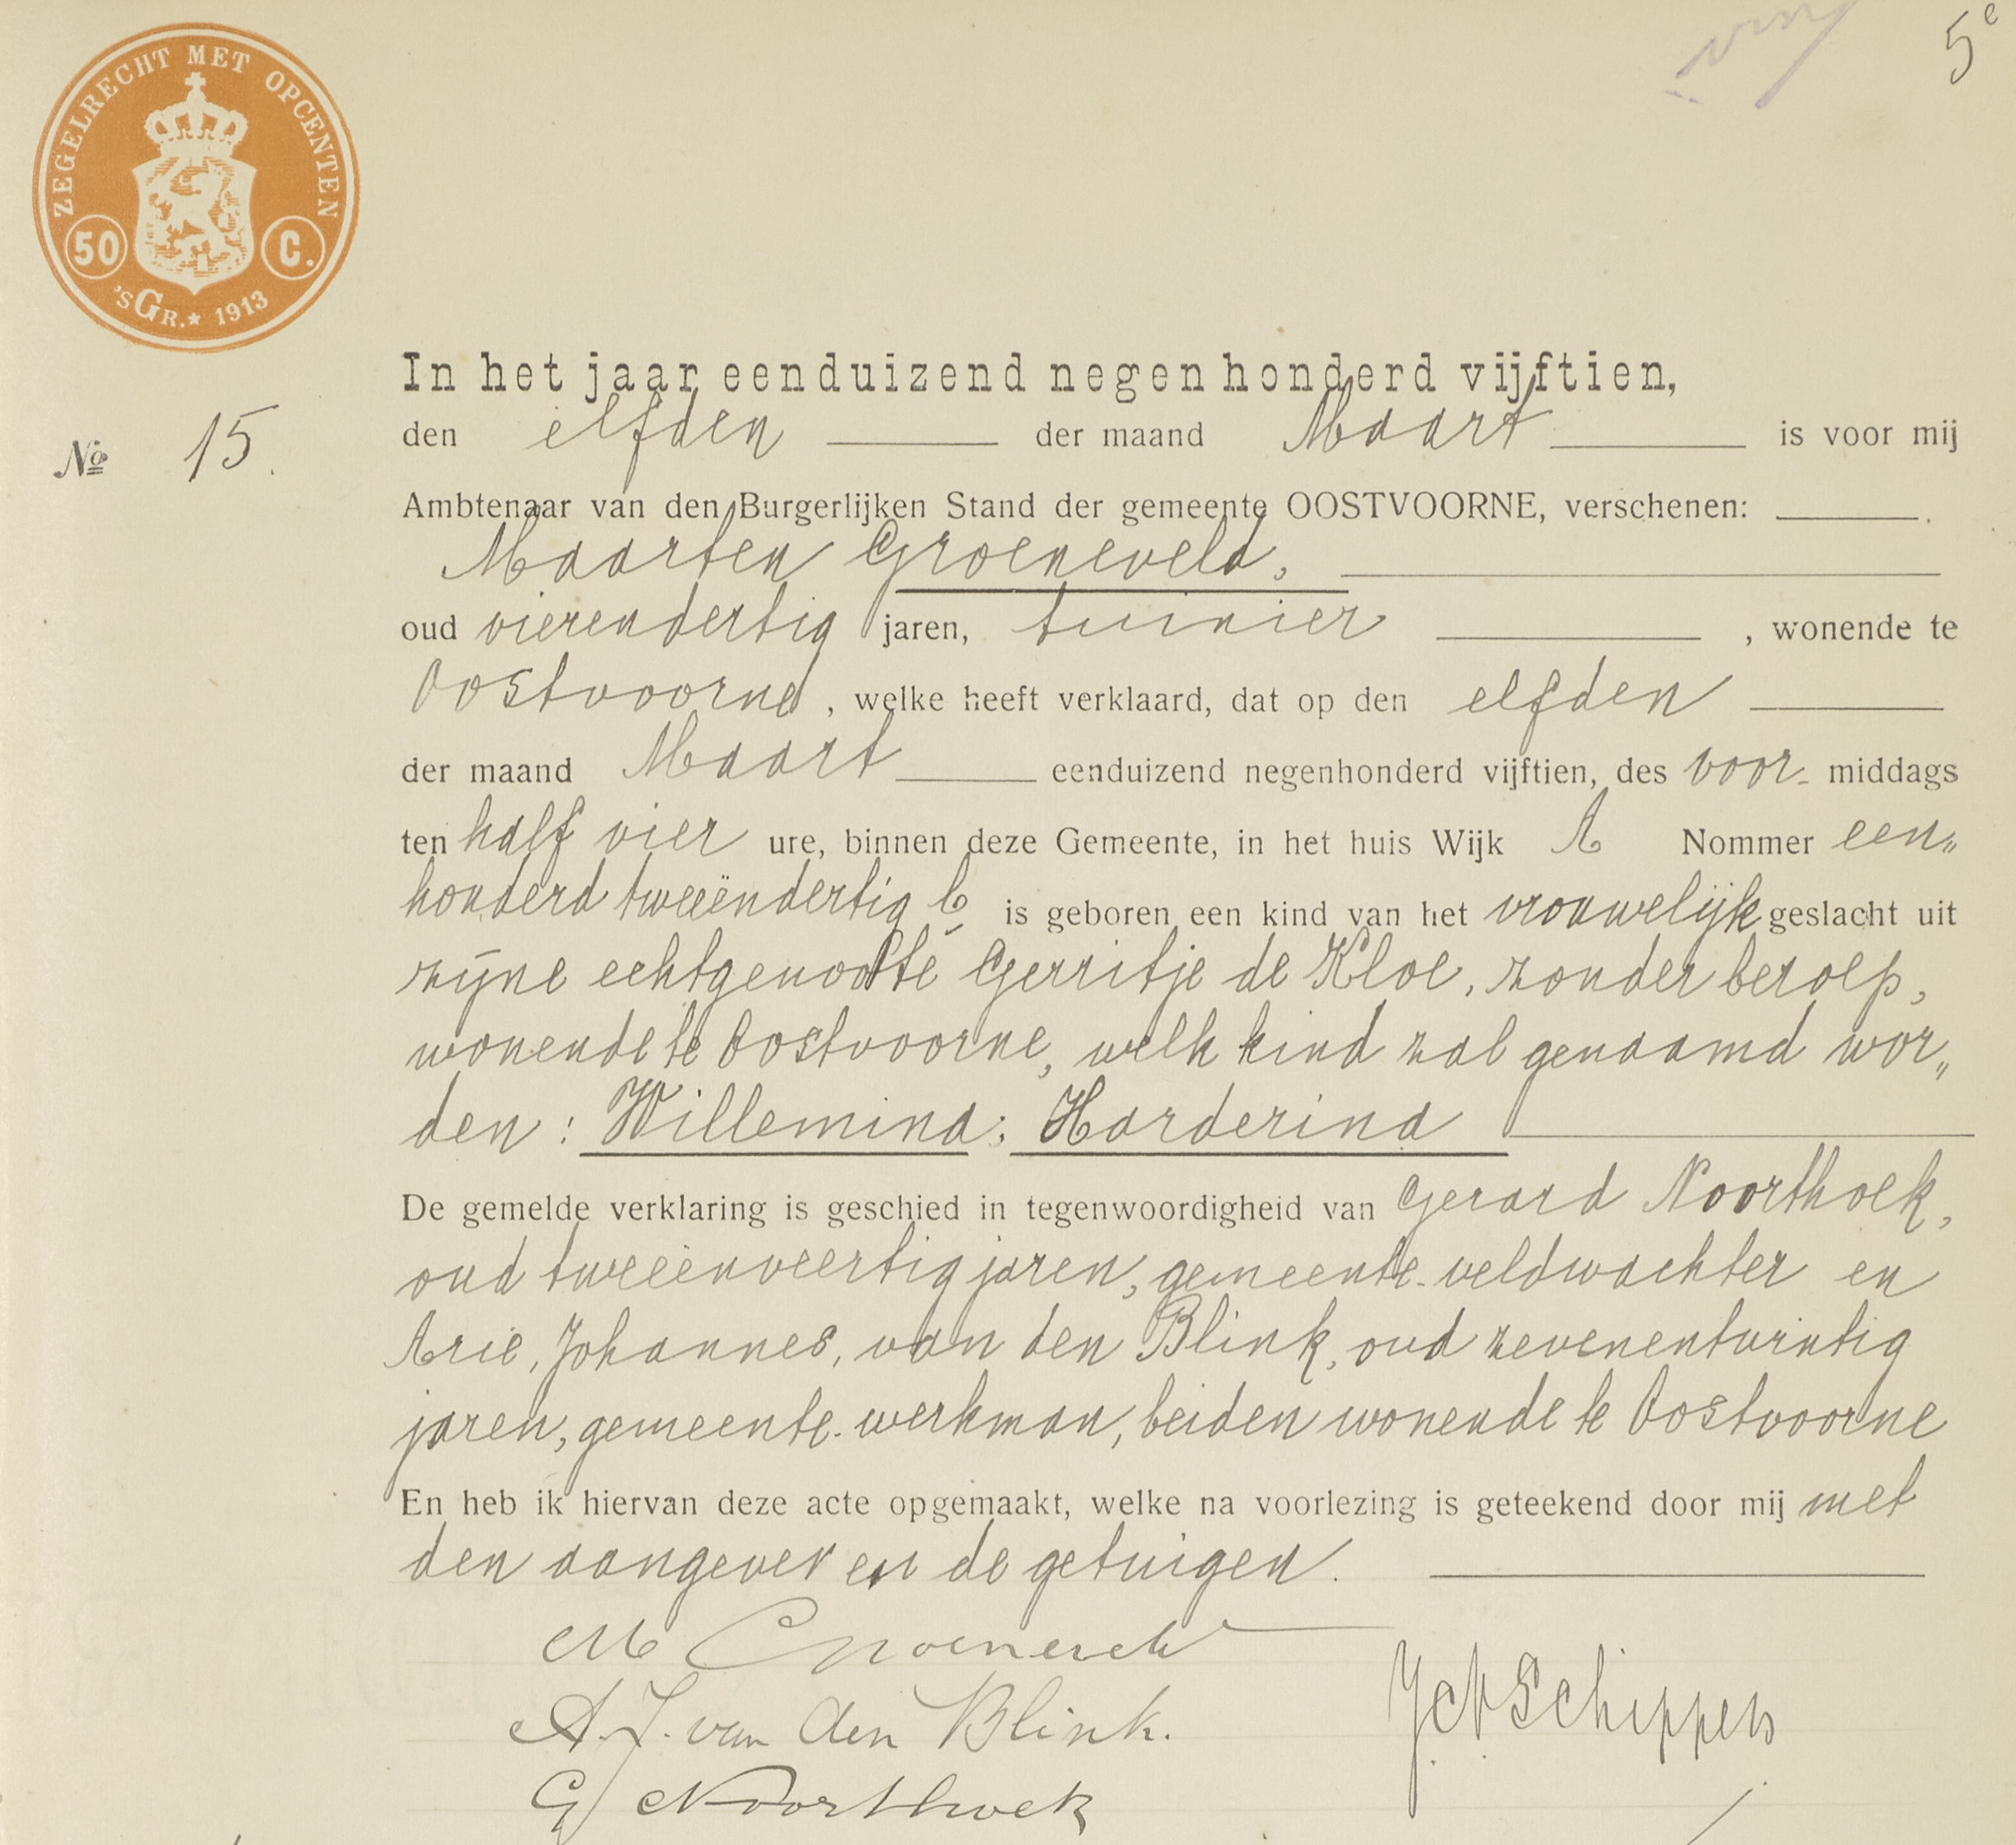 5e
ZEGELRECHT MET OPCENTEN
50 C.
'S GR. * 1913
In het jaar eenduizend negenhonderd vijftien,
No 15.
den elfden der maand Maart is voor mij
Ambtenaar van den Burgerlijken Stand der gemeente OOSTVOORNE, verschenen:
Maarten Groeneveld,
oud vierendertig jaren, tuinier , wonende te
Oostvoorne, welke heeft verklaard, dat op den elfden
der maand Maart eenduizend negenhonderd vijftien, des voor- middags
ten half vier ure, binnen deze Gemeente, in het huis Wijk A Nommer een„
honderd tweeëndertig b is geboren een kind van het vrouwelijk geslacht uit
zijne echtgenoote Gerritje de Kloe, zonder beroep,
wonende te Oostvoorne, welk kind zal genaamd wor„
den: Willemina, Harderina
De gemelde verklaring is geschied in tegenwoordigheid van Gerard Noorthoek,
oud tweeënveertig jaren, gemeente-veldwachter en
Arie, Johannes, van den Blink, oud zevenentwintig
jaren, gemeente-werkman, beiden wonende te Oostvoorne
En heb ik hiervan deze acte opgemaakt, welke na voorlezing is geteekend door mij met
den aangever en de getuigen.
M Groeneveld
A. J. van den Blink.
Schippers
G Noorthoek